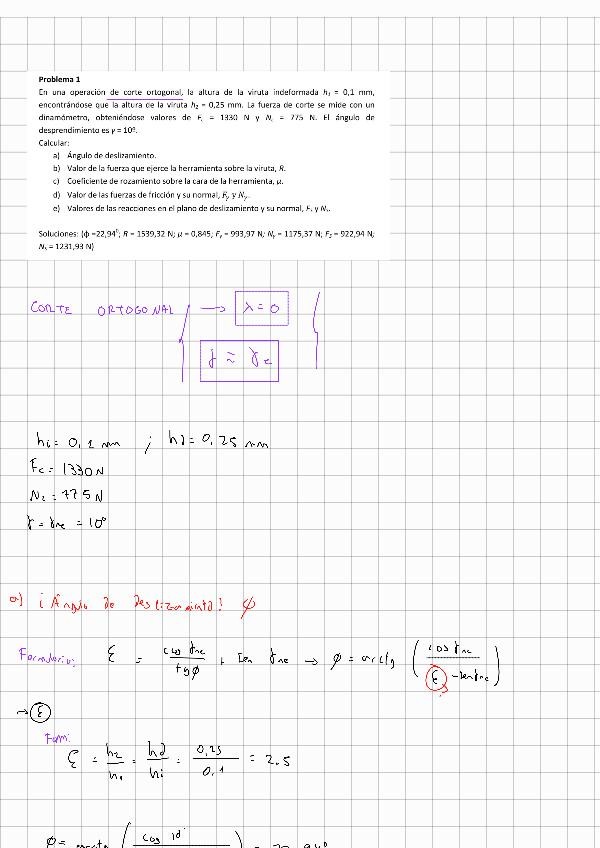 Problema 1
En una operación de corte ortogonal, la altura de la viruta indeformada h₁ = 0,1 mm,
encontrándose que la altura de la viruta h₂ = 0,25 mm. La fuerza de corte se mide con un
dinamómetro, obteniéndose valores de Fc = 1330 N y Nc = 775 N. El ángulo de
desprendimiento es γ = 10º.
Calcular:
a) Ángulo de deslizamiento.
b) Valor de la fuerza que ejerce la herramienta sobre la viruta, R.
c) Coeficiente de rozamiento sobre la cara de la herramienta, μ.
d) Valor de las fuerzas de fricción y su normal, Fγ y Nγ.
e) Valores de las reacciones en el plano de deslizamiento y su normal, Fs y Ns.
Soluciones: (φ =22,94º; R = 1539,32 N; μ = 0,845; Fγ = 993,97 N; Nγ = 1175,37 N; Fs = 922,94 N;
Ns = 1231,93 N)
CORTE ORTOGONAL → λ = 0
γ ≈ γe
hi = 0,1 mm ; hd = 0,25 mm
Fc = 1330 N
Nc = 775 N
γ = γne = 10º
a) ¿Ángulo de deslizamiento? φ
Formulario: ξ = cos γne / tg φ + sen γne → φ = arctg ( cos γne / ξ - sen γne )
→ ξ
Form:
ξ = h₂ / h₁ = hd / hi = 0,25 / 0,1 = 2.5
φ = arctg ( cos 10º